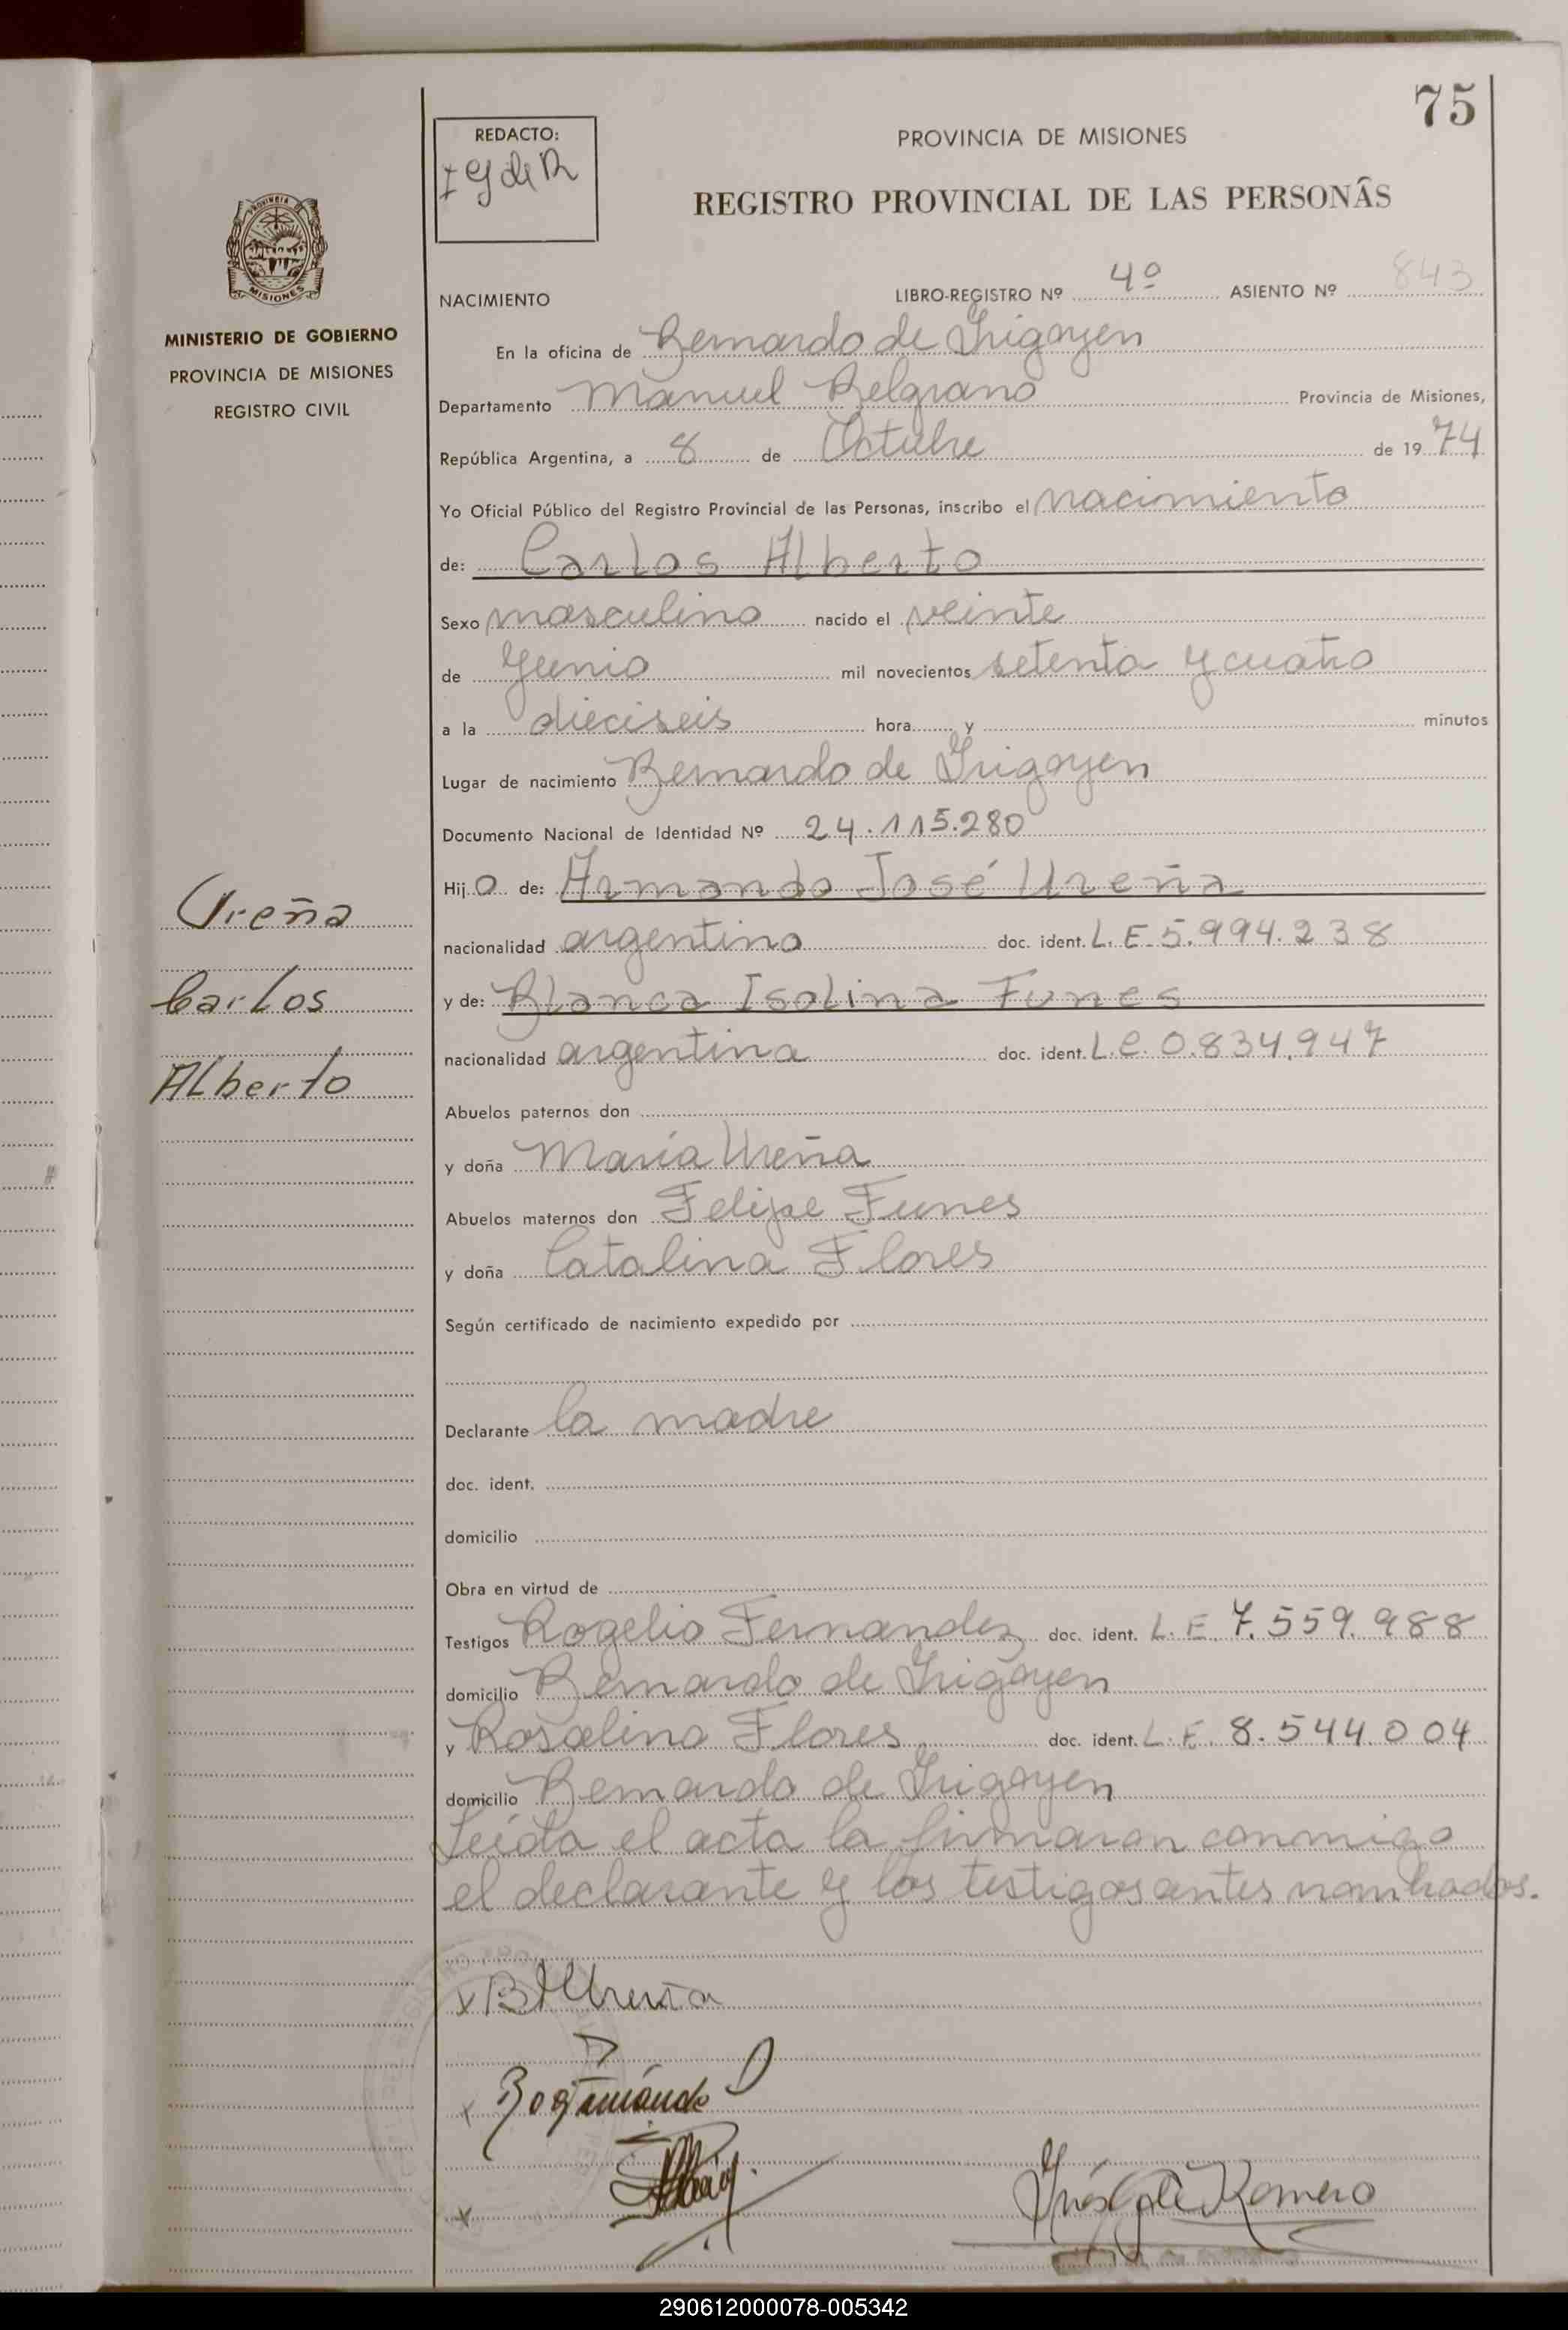 75
REDACTO:
I G de R
PROVINCIA DE MISIONES
REGISTRO PROVINCIAL DE LAS PERSONAS
MISIONES
MINISTERIO DE GOBIERNO
PROVINCIA DE MISIONES
REGISTRO CIVIL
NACIMIENTO LIBRO-REGISTRO Nº 4º ASIENTO Nº 843
En la oficina de Bernardo de Irigoyen
Departamento Manuel Belgrano Provincia de Misiones,
República Argentina, a 8 de Octubre de 1974
Yo Oficial Público del Registro Provincial de las Personas, inscribo el nacimiento
de: Carlos Alberto
Sexo masculino nacido el veinte
de Junio mil novecientos setenta y cuatro
a la dieciseis hora y minutos
Lugar de nacimiento Bernardo de Irigoyen
Documento Nacional de Identidad Nº 24.115.280
Hijo de: Armando José Ureña
nacionalidad argentino doc. ident. L.E. 5.994.238
y de: Blanca Isolina Funes
nacionalidad argentina doc. ident. L.C. 0.834.947
Abuelos paternos don
y doña María Ureña
Abuelos maternos don Felipe Funes
y doña Catalina Flores
Según certificado de nacimiento expedido por
Declarante la madre
doc. ident.
domicilio
Obra en virtud de
Testigos Rogelio Fernandez doc. ident. L.E. 7.559.988
domicilio Bernardo de Irigoyen
y Rosalino Flores doc. ident. L.E. 8.544.004
domicilio Bernardo de Irigoyen
Leída el acta la firmaron conmigo
el declarante y los testigos antes nombrados.
Ureña
Carlos
Alberto
x B Ureña
x
x
Inés G de Romero
290612000078-005342